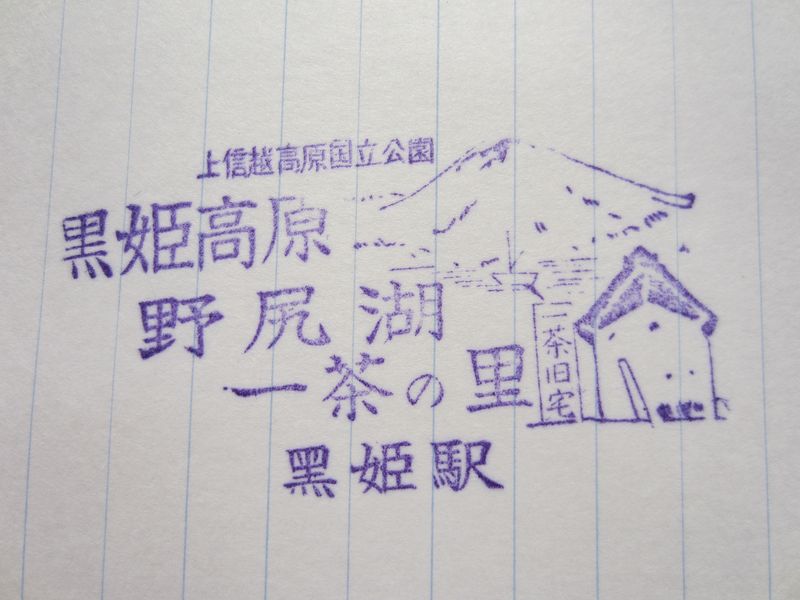 上信越高原国立公園
黒姫高原
野尻湖
一茶の里
一茶旧宅
黒姫駅